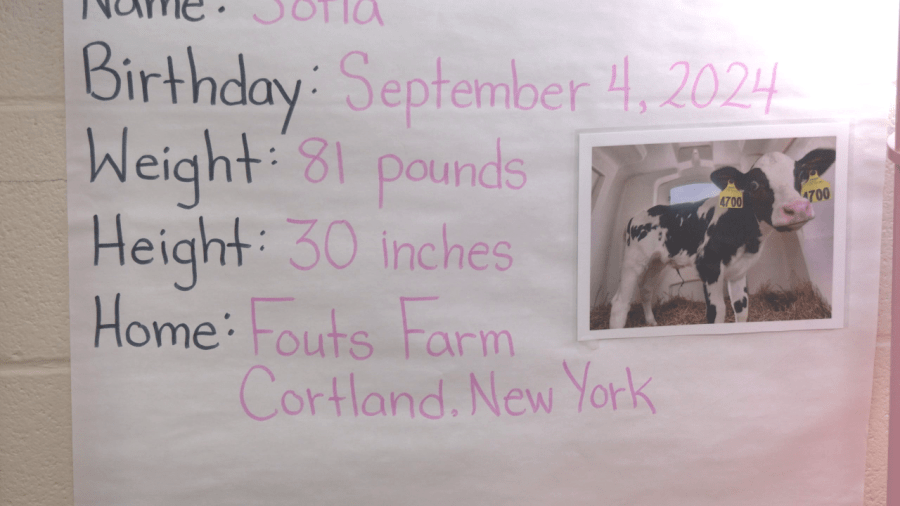 Name: Sofia
Birthday: September 4, 2024
Weight: 81 pounds
Height: 30 inches
Home: Fouts Farm
Cortland, New York
4700
4700